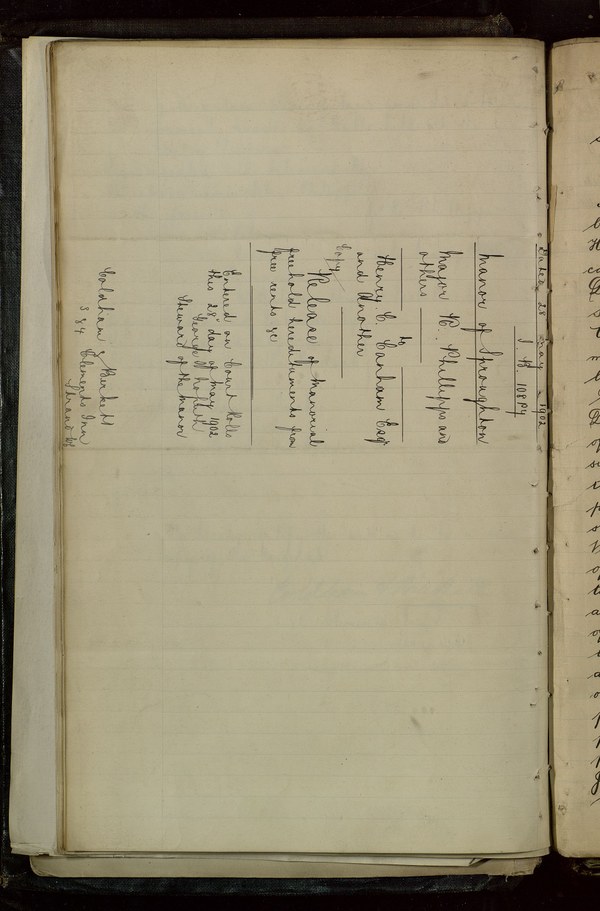 Dated 28 May 1902
Manor of Sproughton
Major W. Phillipps and
others
to
Henry C. Canham Esqr
and Another
Copy
Release of manorial
freehold hereditaments from
free rents &c
Entered on Court Rolls
this 28th day of May 1902
George
Steward of the Manor
Coldham & Birkett
3 & 4 Clements Inn
Strand